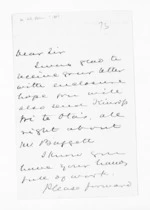 Dear Sir
I was glad to
receive your letter
with enclosure
hope you will
also send
to
right about
Mr Baggett
I know you
have your hands
full of work.
Please forward